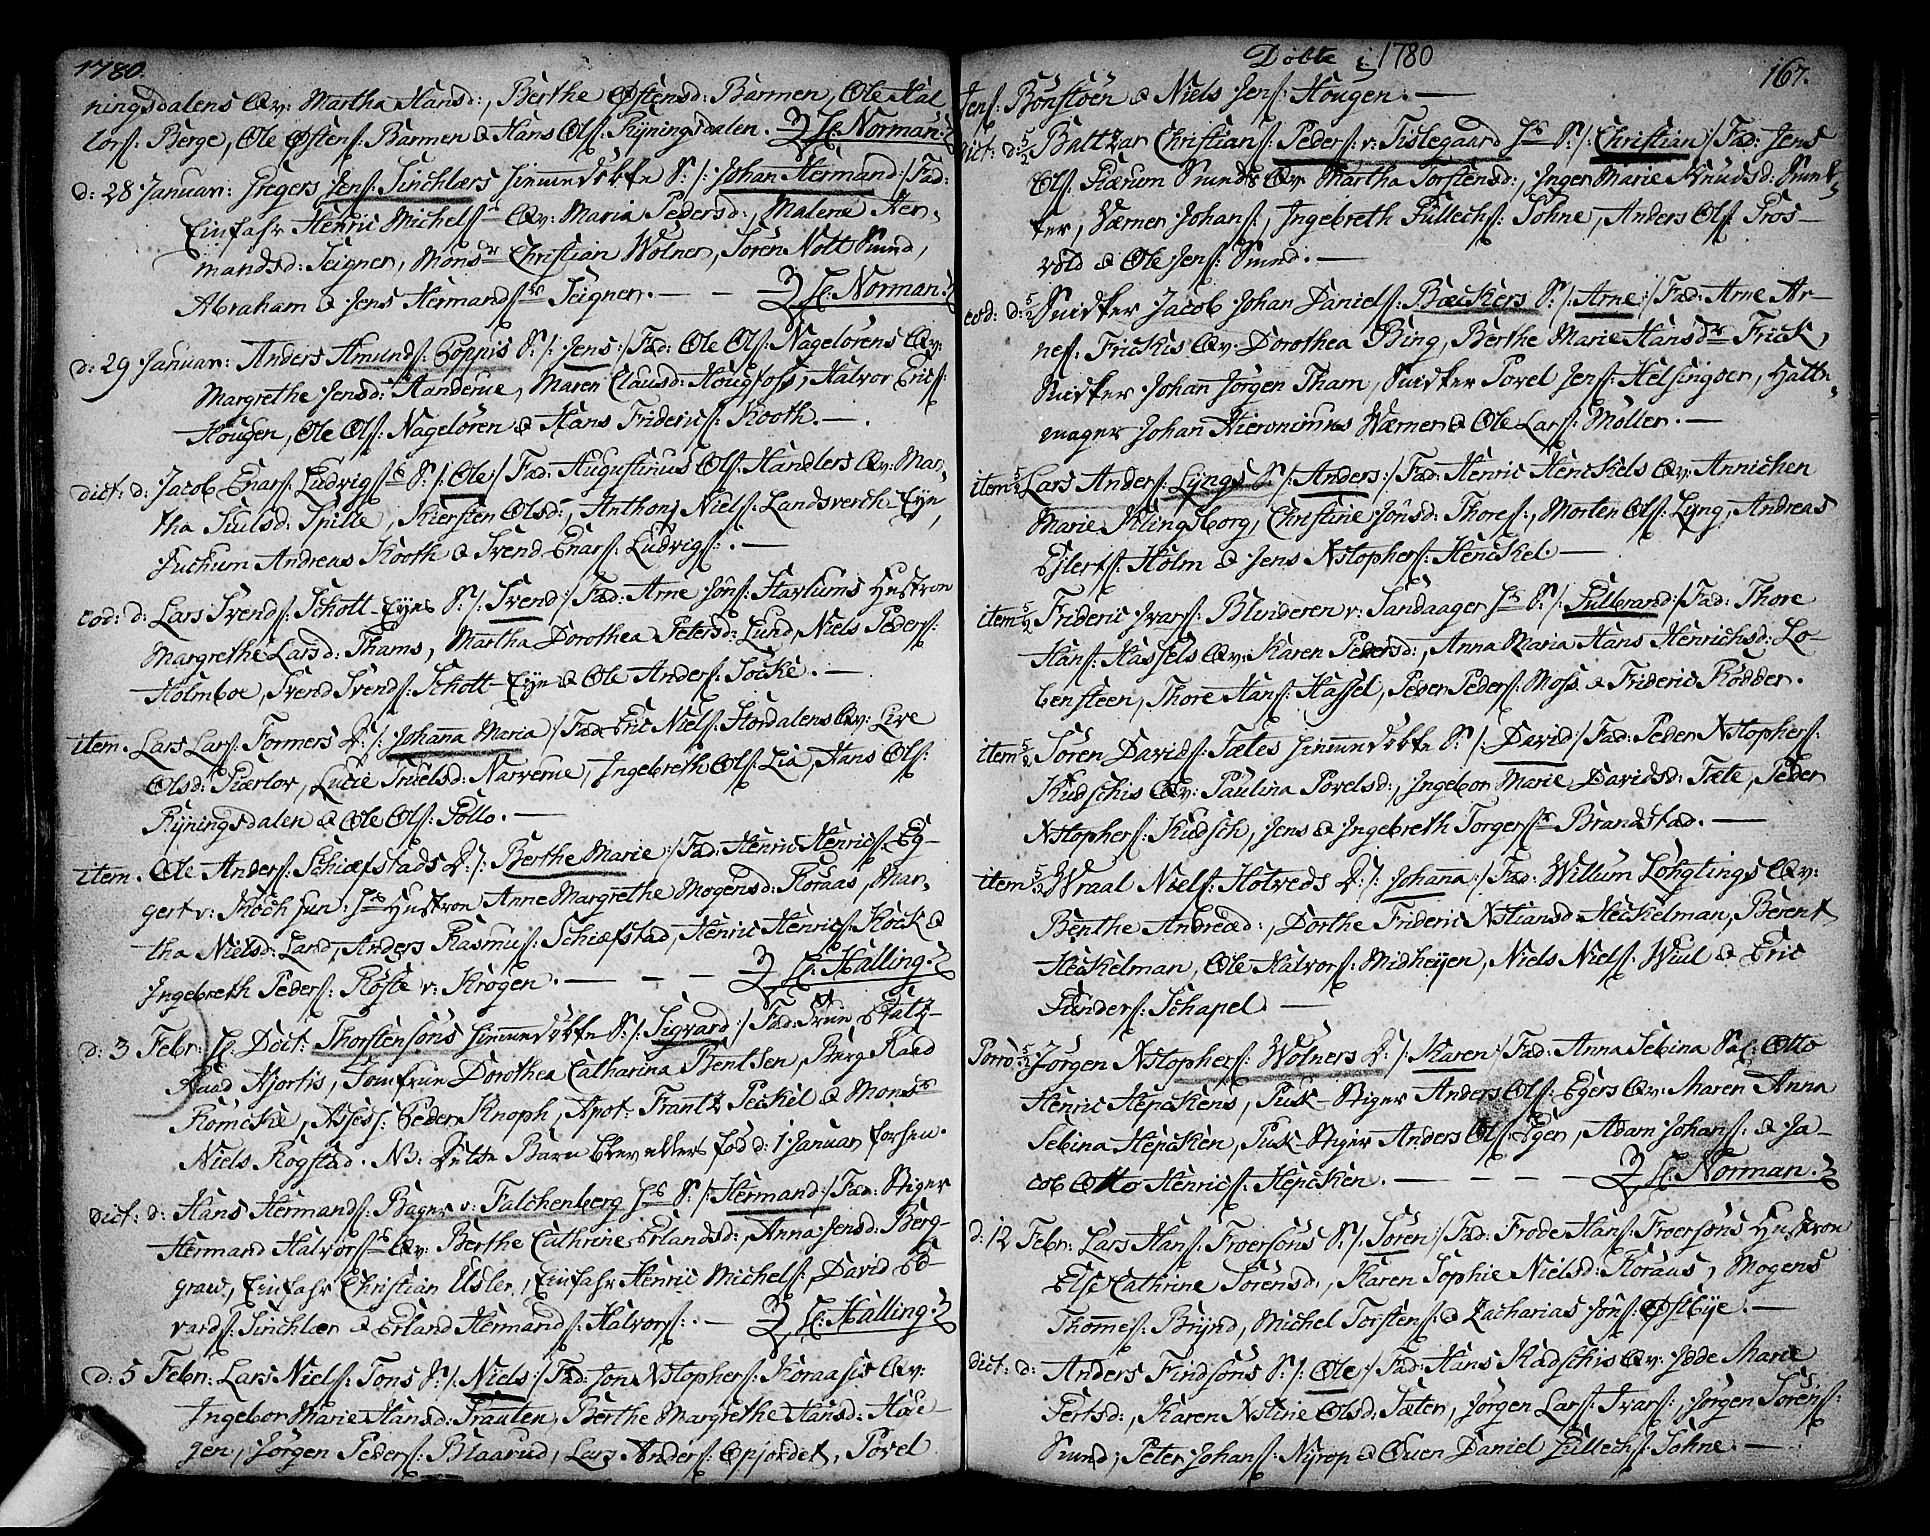 1780.
ningsdalens Qv: Martha Hansd:, Berthe Østensd: Barmen, Ole Hal
lors: Berge, Ole Østens: Barmen & Hans Ols: Ryningsdalen. Hr: Norman.
d: 28 Januar: Gregers Jens: Sinchlærs Hiemmedøbte S: /: Johan Hermand :/ Fad:
Einfahr Henric Michels: Qv: Maria Pedersd:, Malene Her-
mandsd: Seigner, Monsr Christian Wolner, Søren Nott Smed,
Abraham & Jens Hermands: Seigner. — Hr: Norman.
d: 29 Januar: Anders Amunds: Poppis S: /: Jens :/ Fad: Ole Ols: Nagelørens Qv:
Margrethe Jensd: Handerue, Maren Clausd: Hougfoss, Halvor Erics:
Hougen, Ole Ols: Nageløren & Hans Friderics: Kooth. —
dict: d: Jacob Enars: Ludvigs: S: /: Ole :/ Fad: Augustinus Ols: Handlers Qv: Mar-
tha Juulsd: Spille, Kiersten Olsd:, Anthonj Niels: Landsverch-Eyn,
Juchum Andreas Kooth & Svend Enars: Ludvigs:. —
eod: d: Lars Svends: Schott-Eyes S: /: Svend :/ Fad: Arne Jøns: Havlums Hustroe
Margrethe Larsd: Thams, Martha Dorothea Petersd: Lund, Niels Peders:
Holmboe, Svend Svends: Schott-Eye & Ole Anders: Socke. —
item. Lars Lars: Formers D: /: Johanna Maria :/ Fad: Eric Niels: Stordalens Qv: Live
Olsd: Kiærlov, Lucie Truelsd: Narverue, Ingebreth Ols: Lia, Hans Ols:
Ryningsdalen & Ole Ols: Pollo. —
item. Ole Anders: Schiæfstads D: /: Berthe Marie :/ Fad: Henric Henrics: Eg-
gert v: Koch jun: Hustroe Anne Margrethe Mogensd: Koraas, Mar-
tha Nielsd: Land, Anders Rasmus: Schiæfstad, Henric Henrics: Kock &
Ingebreth Peders: Røste v: Krogen. — Hr: Halling.
d: 3 Febr: Hr: Doct: Thorstensons Hiemmedøbte S: /: Sigvard :/ Fad: Frue
Raad Hjortis, Jomfrue Dorothea Catharina Bentsen, Berg Raad
Romcke, Assess: Peder Knoph, Apot: Frantz Peckel & Monsr
Niels Rogstad. NB: Dette Barn blev ellers fød d: 1 Januar
dict: d: Hans Hermands: Bager v: Falchenberg S: /: Hermand :/ Fad: Stiger
Hermand Halvors: Qv: Berthe Cathrine Erlandsd:, Anna Jensd: Berg-
grav, Einfahr Christian Elsler, Einfahr Henric Michels: David Ed-
vards: Sinchlær & Erland Hermands: Halvors:. — Hr: Halling.
d: 5 Febr: Lars Niels: Tons S: /: Niels :/ Fad: Jon Xstophers: Koraasis Qv:
Ingebor Marie Hansd: Trauten, Berthe Margrethe Hansd: Houe-
gen, Jørgen Peders: Blaarud, Lars Anders: Opjordet, Povel
Døbte i 1780
167.
Jens: Bonstøen & Niels Jens: Hougen. —
dict: d: 5/2 Baltzar Christians: Peders: v: Tislegaard S: /: Christian :/ Fad: Jens
Ols: Kiærum Smeds Qv Martha Torstensd:, Inger Marie Knudsd:
ter, Værner Johans:, Ingebreth Fullechs: Sohne, Anders Ols: Pros-
vold & Ole Jens: Smed. —
eod: d: 5/2 Snidker Jacob Johan Daniels: Backers S: /: Arne :/ Fad: Arne Ar-
nes: Frickis Qv: Dorothea Bing, Berthe Marie Hansdr Frick,
Snidker Johan Jørgen Tham, Snidker Povel Jens: Helsingøer, Hatte-
mager Johan Hieronimus Wærner & Ole Lars: Møller. —
item 5/2 Lars Anders: Lyngs S: /: Anders :/ Fad: Henric Henckels Qv: Annichen
Marie Klingsborg, Christine Jønsd: Thores:, Morten Ols: Lyng, Andreas
Eylerts: Holm & Jens Xstophers: Henckel. —
item 5/2 Frideric Ivars: Blinderen v: Sandaager S: /: Fulbrand :/ Fad: Thore
Hans: Hassels Qv: Karen Pedersd:, Anna Maria Hans Henrichsd: Lo-
bensteen, Thore Hans: Hassel, Peder Peders: Moss & Frideric Rødder.
item 5/2 Søren Davids: Tætes Hiemmedøbte S: /: David :/ Fad: Peder Xstophers:
Kudschis Qv: Paulina Povelsd:, Ingebor Marie Davidsd: Tæte, Peder
Xstophers: Kudsch, Jens & Ingebreth Torgers: Brandstad. —
item 5/2 Wraal Niels: Holveds D: /: Johana :/ Fad: Willum Løhgtings Qv:
Benthe Andreæd:, Dorthe Frideric Xstiansd: Heckelman, Berent
Heckelman, Ole Halvors: Midheyen, Niels Niels: Wiul & Eric
Gunders: Schapel —
Porro 5/2 Jørgen Xstophers: Wolners D: /: Karen :/ Fad: Anna Sebina Sal: Otto
Henric Hepckens, Puk-Stiger Anders Ols: Egers Qv: Maren Anna
Sebina Hepcken, Puk-Stiger Anders Ols: Eger, Adam Johans: & Ja-
cob Otto Henrics: Hepcken. — Hr: Norman.
d: 12 Febr: Lars Hans: Froersons S: /: Søren :/ Fad: Frode Hans: Froersons Hustroe
Else Cathrine Sørensd:, Karen Sophie Nielsd: Koraas, Mogens
Thommes: Brynd, Michel Torstens: & Zacharias Jøns: Østbye. —
dict: d: Anders Findsøns S: /: Ole :/ Fad: Hans Kadschis Qv: Jdde Marie
Pertsd:, Karen Xstine Olsd: Tæter, Jørgen Lars: Ivars:, Jørgen Sørens:
Smed, Peter Johans: Nyrop & Even Daniel Fullechs: Sohne. —